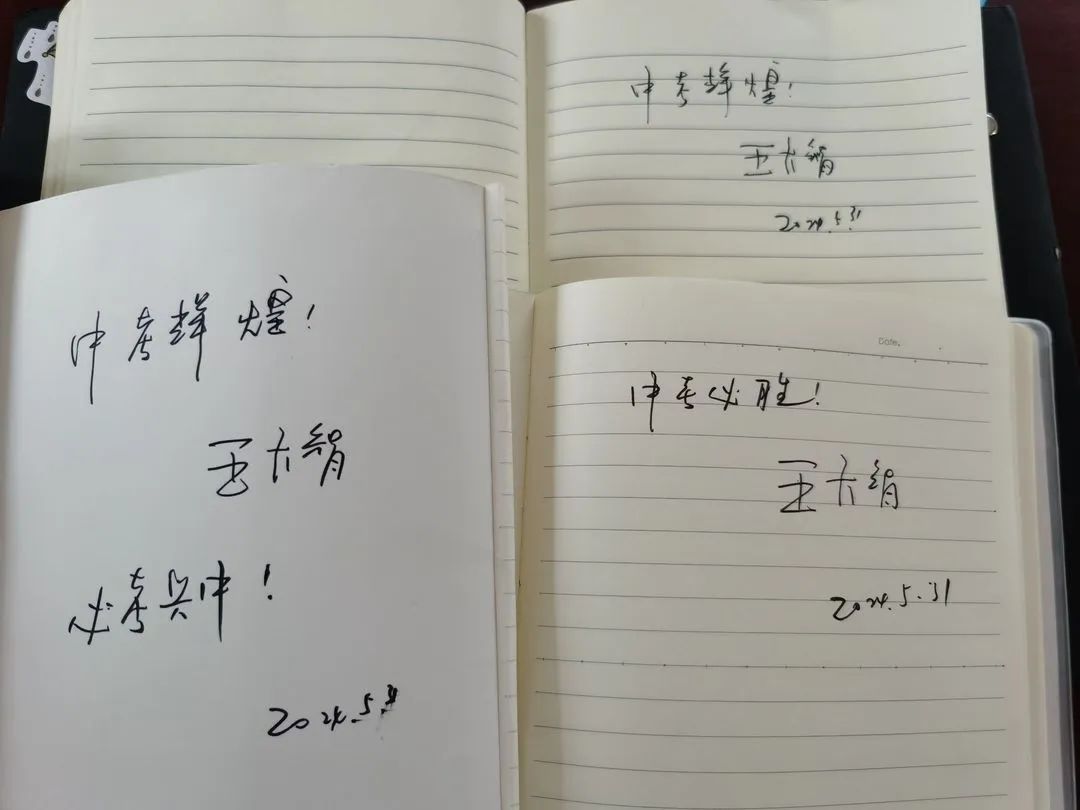 中考辉煌!
王大绢
2024.5.31
中考辉煌!
王大绢
必考兴中!
2024.5.31
Date.
中考必胜!
王大绢
2024.5.31